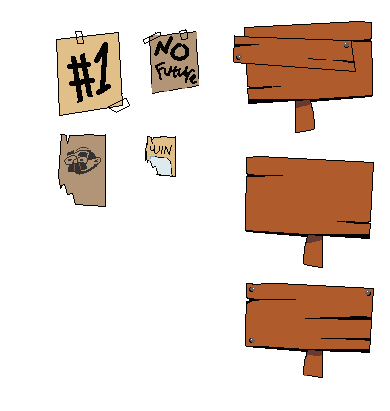 #1
NO
Future
WIN